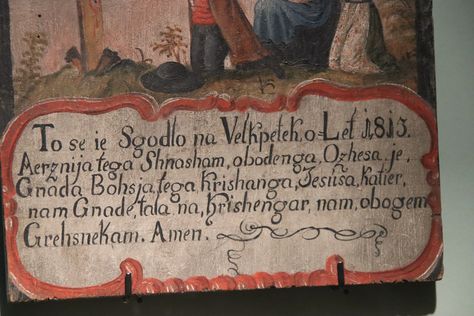 To se ie Sgodlo na Velkpetek, o Let 1815.
Aerznija tega Shnasham, obodenga, Ozhesa, je,
Gnada Bohsja, tega, Krishanga, Jesusa, Katier,
nam Gnade, tala na, Krishengar, nam, obogem
Grehsnekam. Amen.